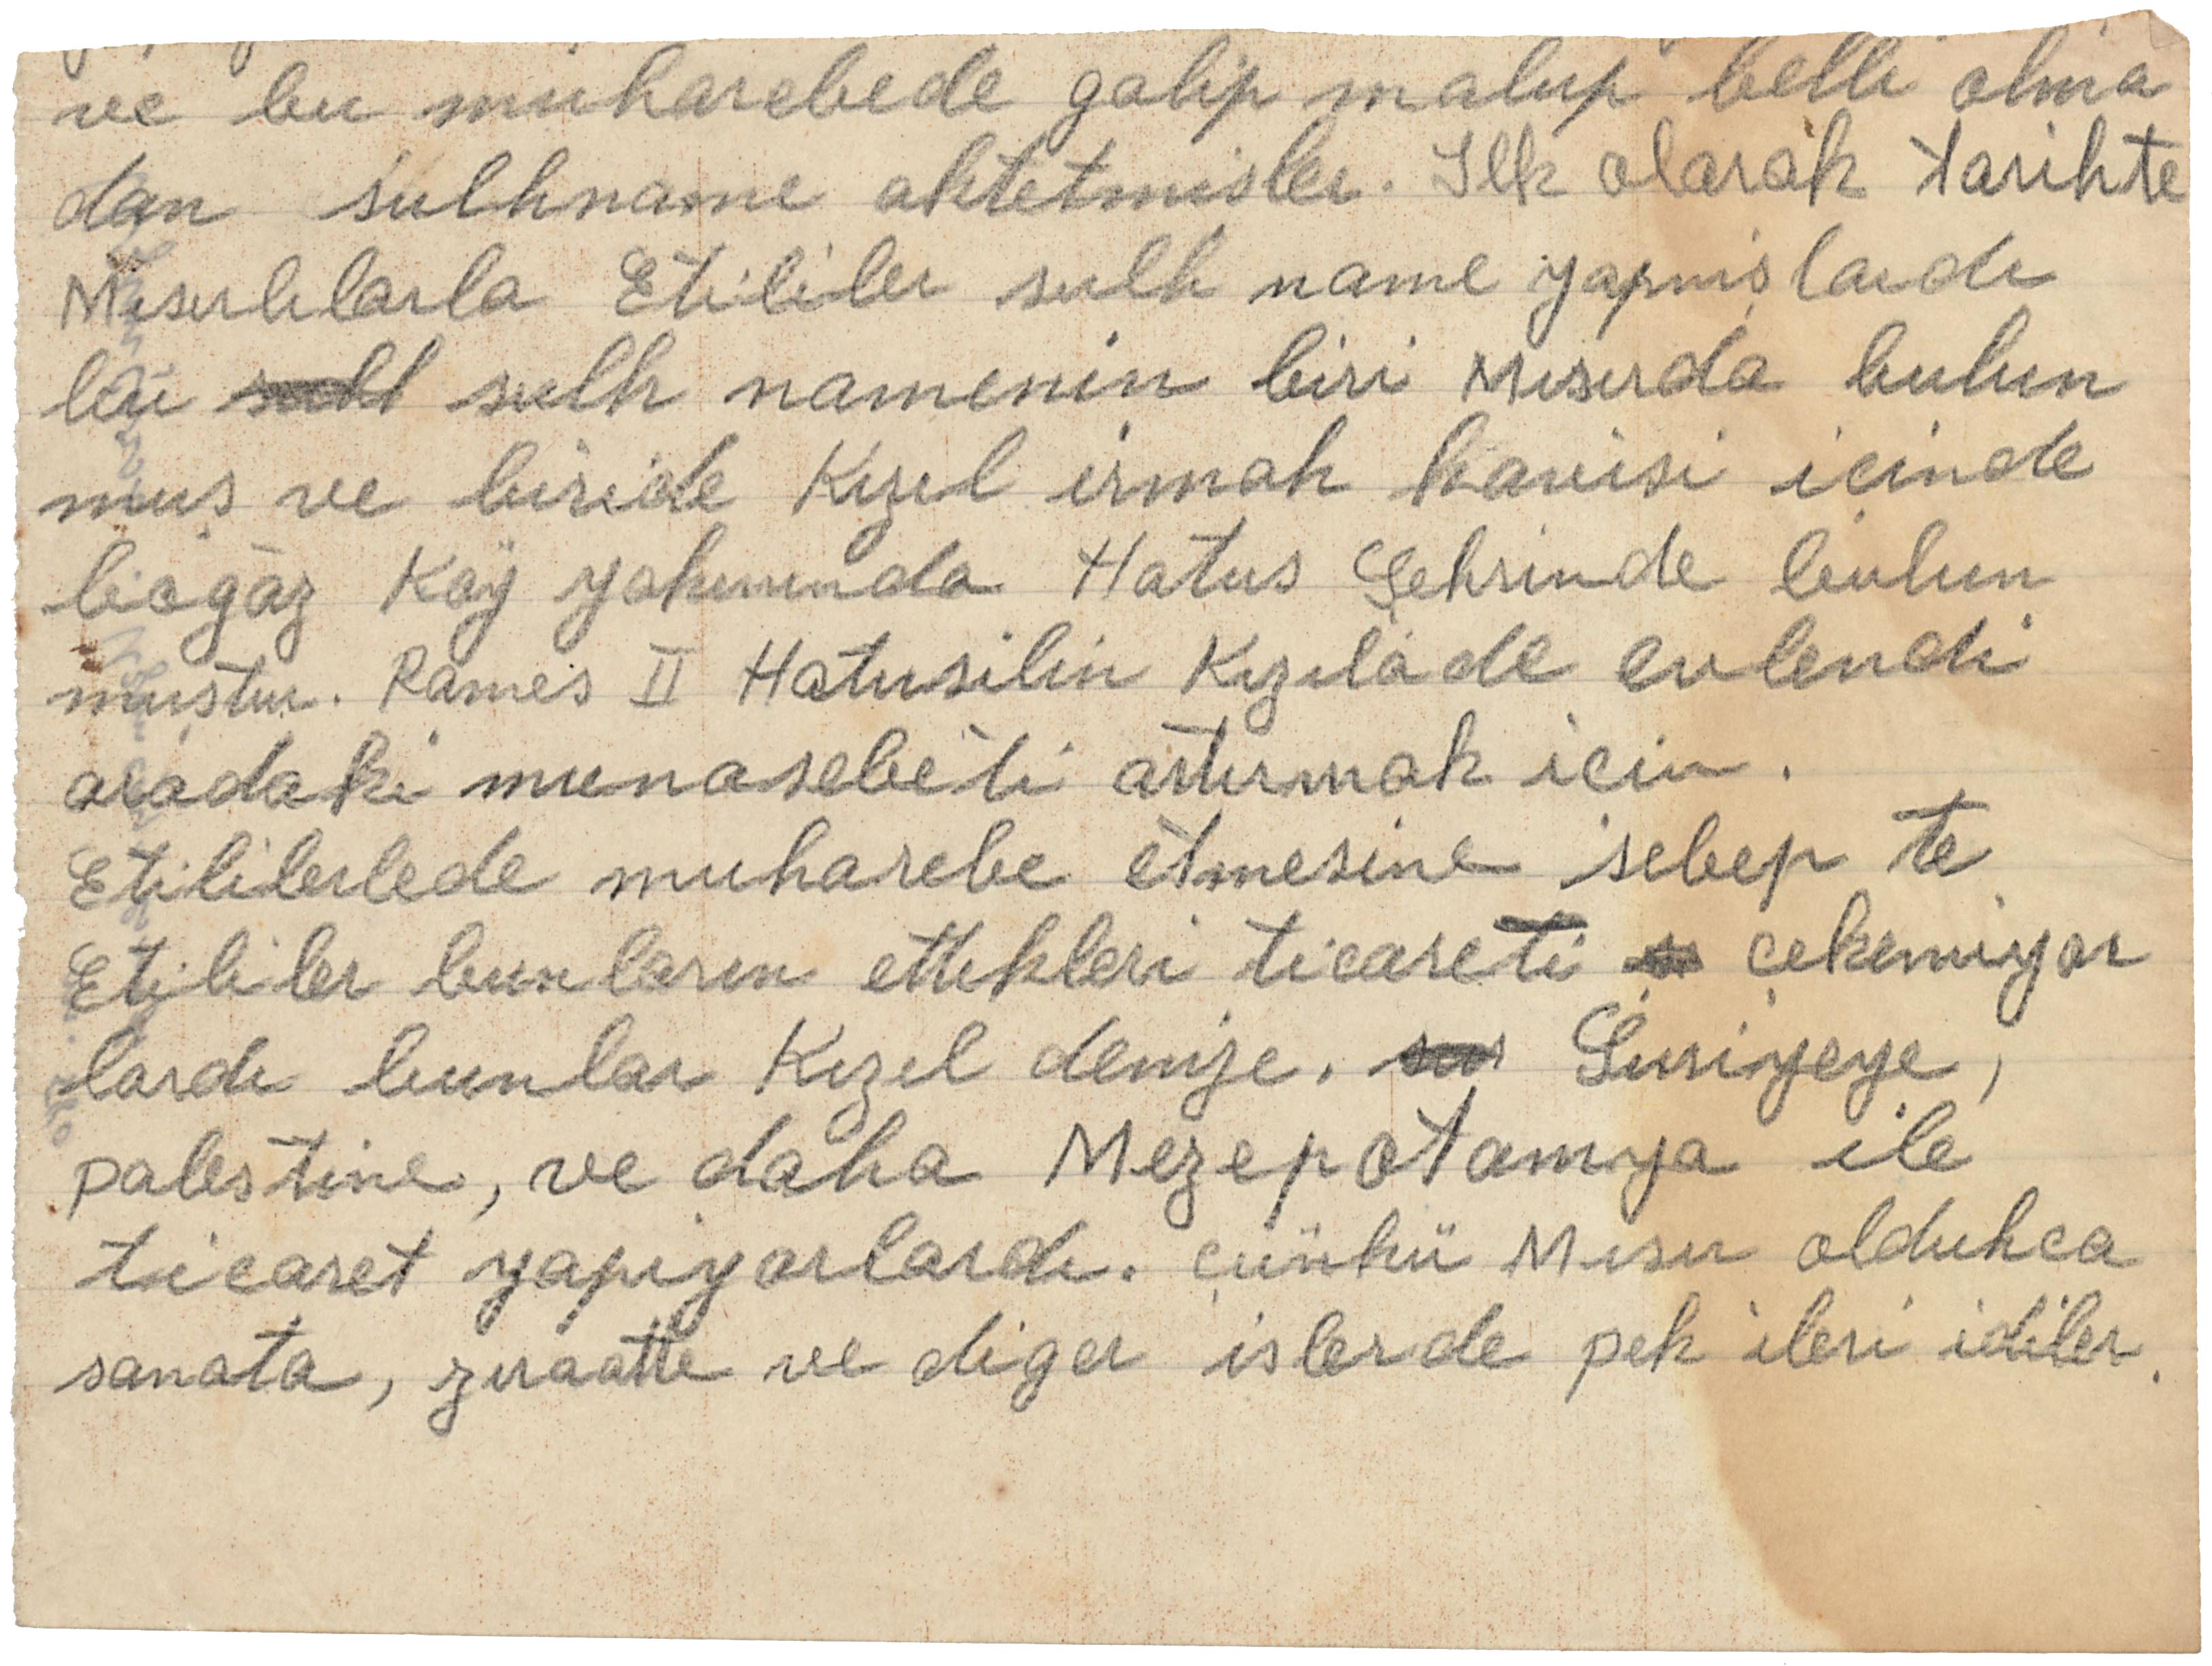 ve bu muharebede galip malup belli olma
dan sulhname aktetmisler. Ilk olarak tarihte
Mısırlılarla Etililer sulh name yapmışlardı
bu sulh namenin biri Mısırda bulun
mus ve biride Kızıl irmak kavisi icinde
bogaz Köy yakınında Hatus Şehrinde bulun
muştur. Rames II Hatusilin Kızılade evlendi
aradaki munasebeti artırmak icin.
Etililerlede muharebe etmesine sebep te
Etililer bunların ettikleri ticareti çekemiyor
lardı bunlar Kızıl denize. Suriyeye,
palestine, ve daha Mezepotamya ile
ticaret yapiyorlardı. çünkü Mısır oldukca
sanata, ziraatte ve diger islerde pek ileri idiler.